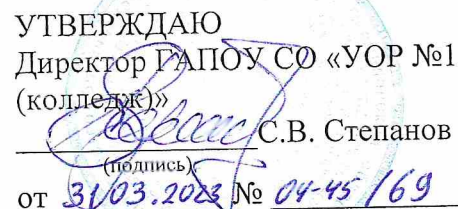 УТВЕРЖДАЮ
Директор ГАПОУ СО «УОР №1
(колледж)»
С.В. Степанов
(подпись)
от 31.03.2023 № 04-45/69